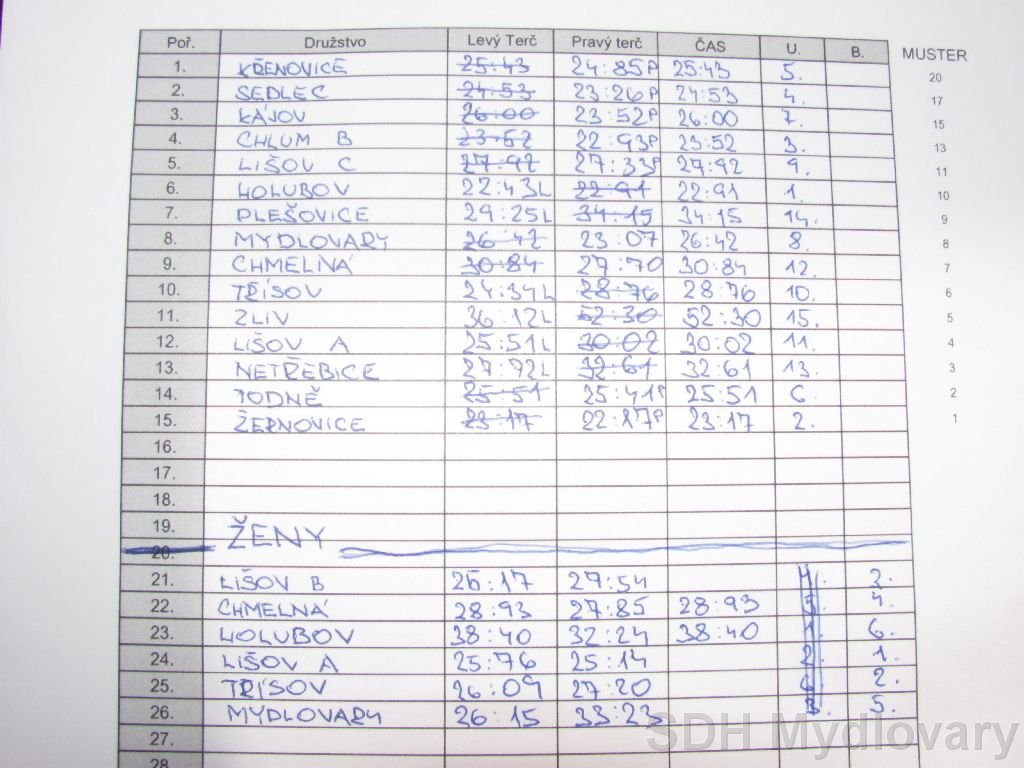 Poř. Družstvo Levý Terč Pravý terč ČAS U. B. MUSTER
1. KŘENOVICE 25:43 24:85P 25:43 5. 20
2. SEDLEC 24:53 23:26P 24:53 4. 17
3. KÁJOV 26:00 23:52P 26:00 7. 15
4. CHLUM B 23:52 22:93P 23:52 3. 13
5. LIŠOV C 27:92 27:33P 27:92 9. 11
6. HOLUBOV 22:43L 22:91 22:91 1. 10
7. PLEŠOVICE 29:25L 34:15 34:15 14. 9
8. MYDLOVARY 26:42 23:07 26:42 8. 8
9. CHMELNÁ 30:84 27:70 30:84 12. 7
10. TŘÍSOV 24:34L 28:76 28:76 10. 6
11. ZLIV 36:12L 52:30 52:30 15. 5
12. LIŠOV A 25:51L 30:02 30:02 11. 4
13. NETŘEBICE 27:72L 32:61 32:61 13. 3
14. TODNĚ 25:51 25:41P 25:51 6. 2
15. ŽERNOVICE 23:17 22:17P 23:17 2. 1
16.
17.
18.
19. ŽENY
20.
21. LIŠOV B 26:17 27:54 4. 3.
22. CHMELNÁ 28:93 27:85 28:93 4.
23. HOLUBOV 38:40 32:24 38:40 1. 6.
24. LIŠOV A 25:76 25:14 2. 1.
25. TŘÍSOV 26:09 27:20 2.
26. MYDLOVARY 26:15 33:23 3. 5.
27.
28.
SDH Mydlovary